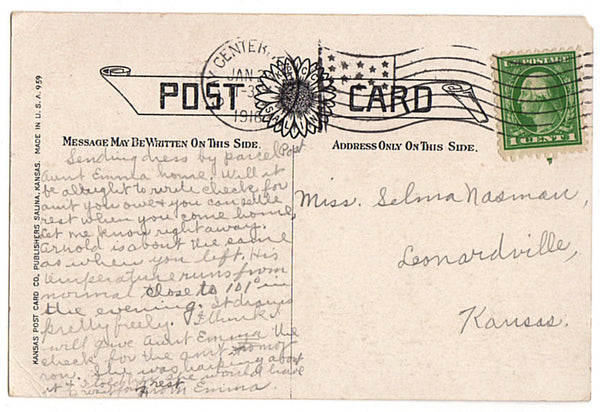 CENTER
JAN
1918
POST CARD
MESSAGE MAY BE WRITTEN ON THIS SIDE.
ADDRESS ONLY ON THIS SIDE.
1 CENT
KANSAS POST CARD CO., PUBLISHERS SALINA, KANSAS. MADE IN U.S.A. 959
Sending dress by parcel Post
Aunt Emma home. Will it
be allright to write check for
amt you owe & you can settle
rest when you come home,
Let me know right away.
Arnold is about the same
as when you left. His
temperature runs from
normal close to 101° in
the evening. It drains
pretty freely. I think I
will give Aunt Emma the
check for the amt
row. She was asking about
it & I told her she would have
to wait for rest
from Emma.
Miss. Selma Nasman,
Leonardville,
Kansas.